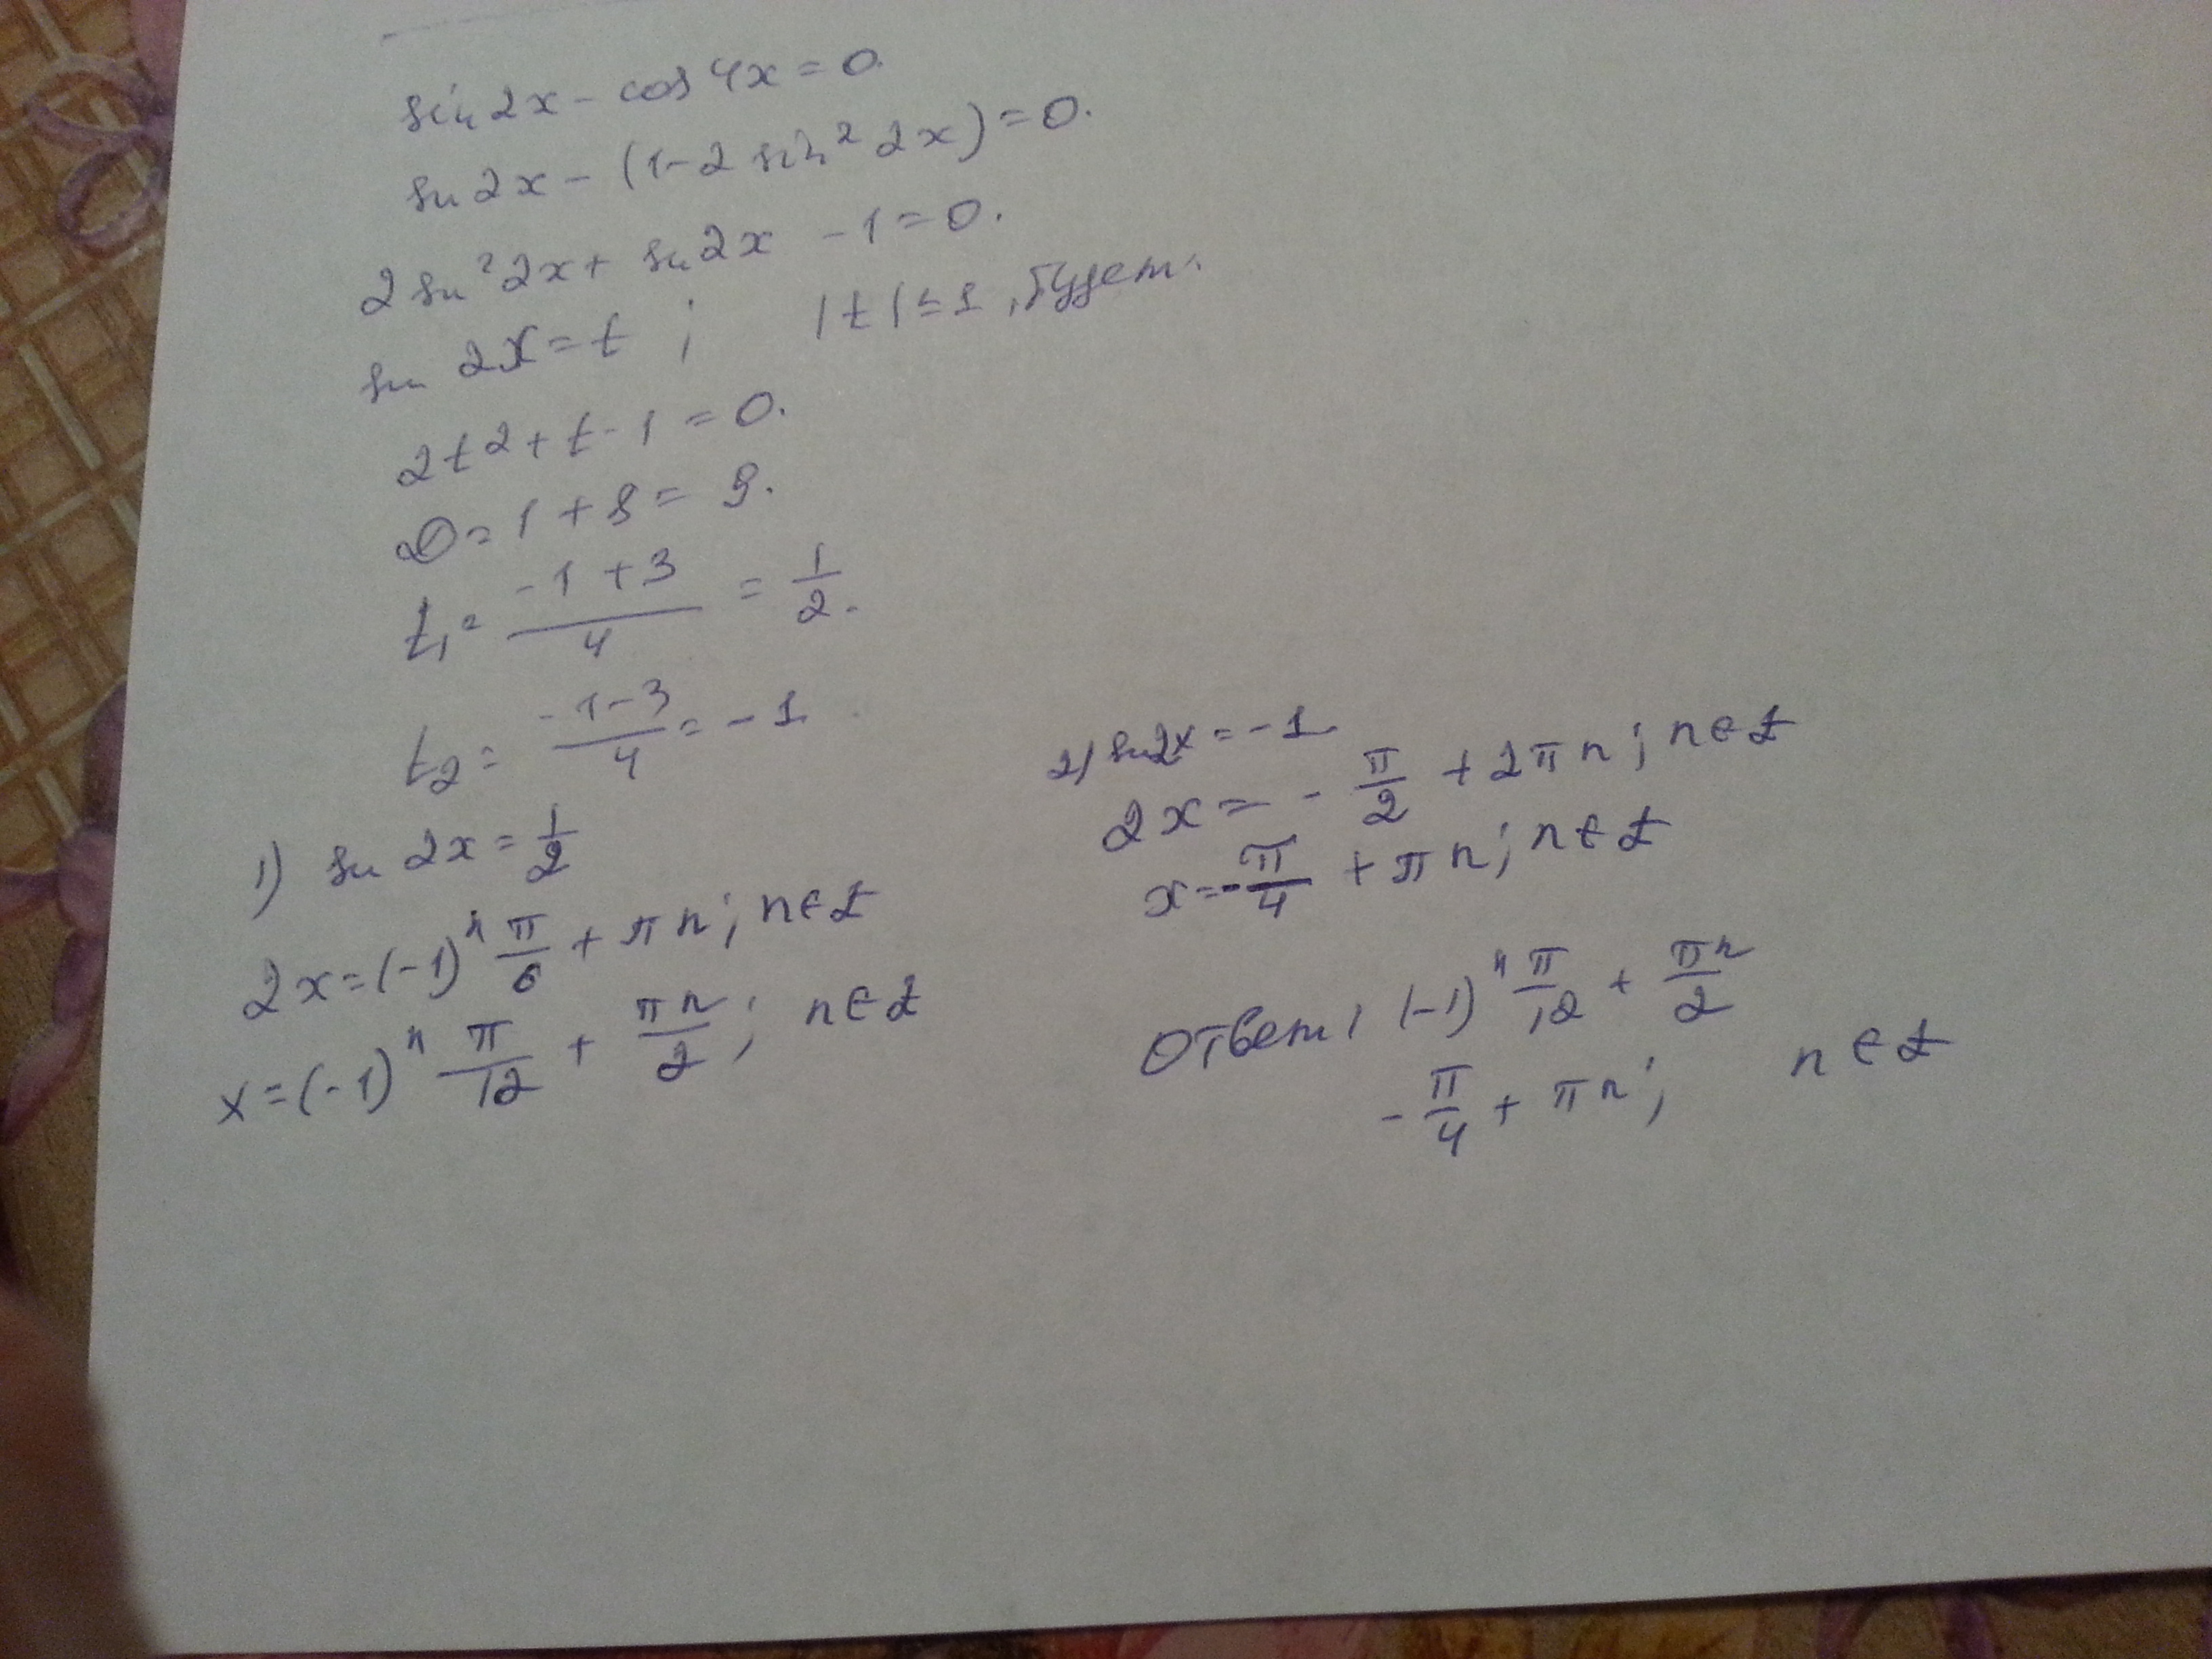 sin 2x - cos 4x = 0.
sin 2x - (1 - 2 sin² 2x) = 0.
2 sin² 2x + sin 2x - 1 = 0.
sin 2x = t ; |t| ≤ 1, будет:
2t² + t - 1 = 0.
D = 1 + 8 = 9.
t₁ = (-1 + 3)/4 = 1/2.
t₂ = (-1 - 3)/4 = -1
1) sin 2x = 1/2
2x = (-1)ⁿ π/6 + πn; n ∈ Z
x = (-1)ⁿ π/12 + πn/2; n ∈ Z
2) sin 2x = -1
2x = - π/2 + 2πn; n ∈ Z
x = - π/4 + πn; n ∈ Z
Ответ: (-1)ⁿ π/12 + πn/2
- π/4 + πn; n ∈ Z